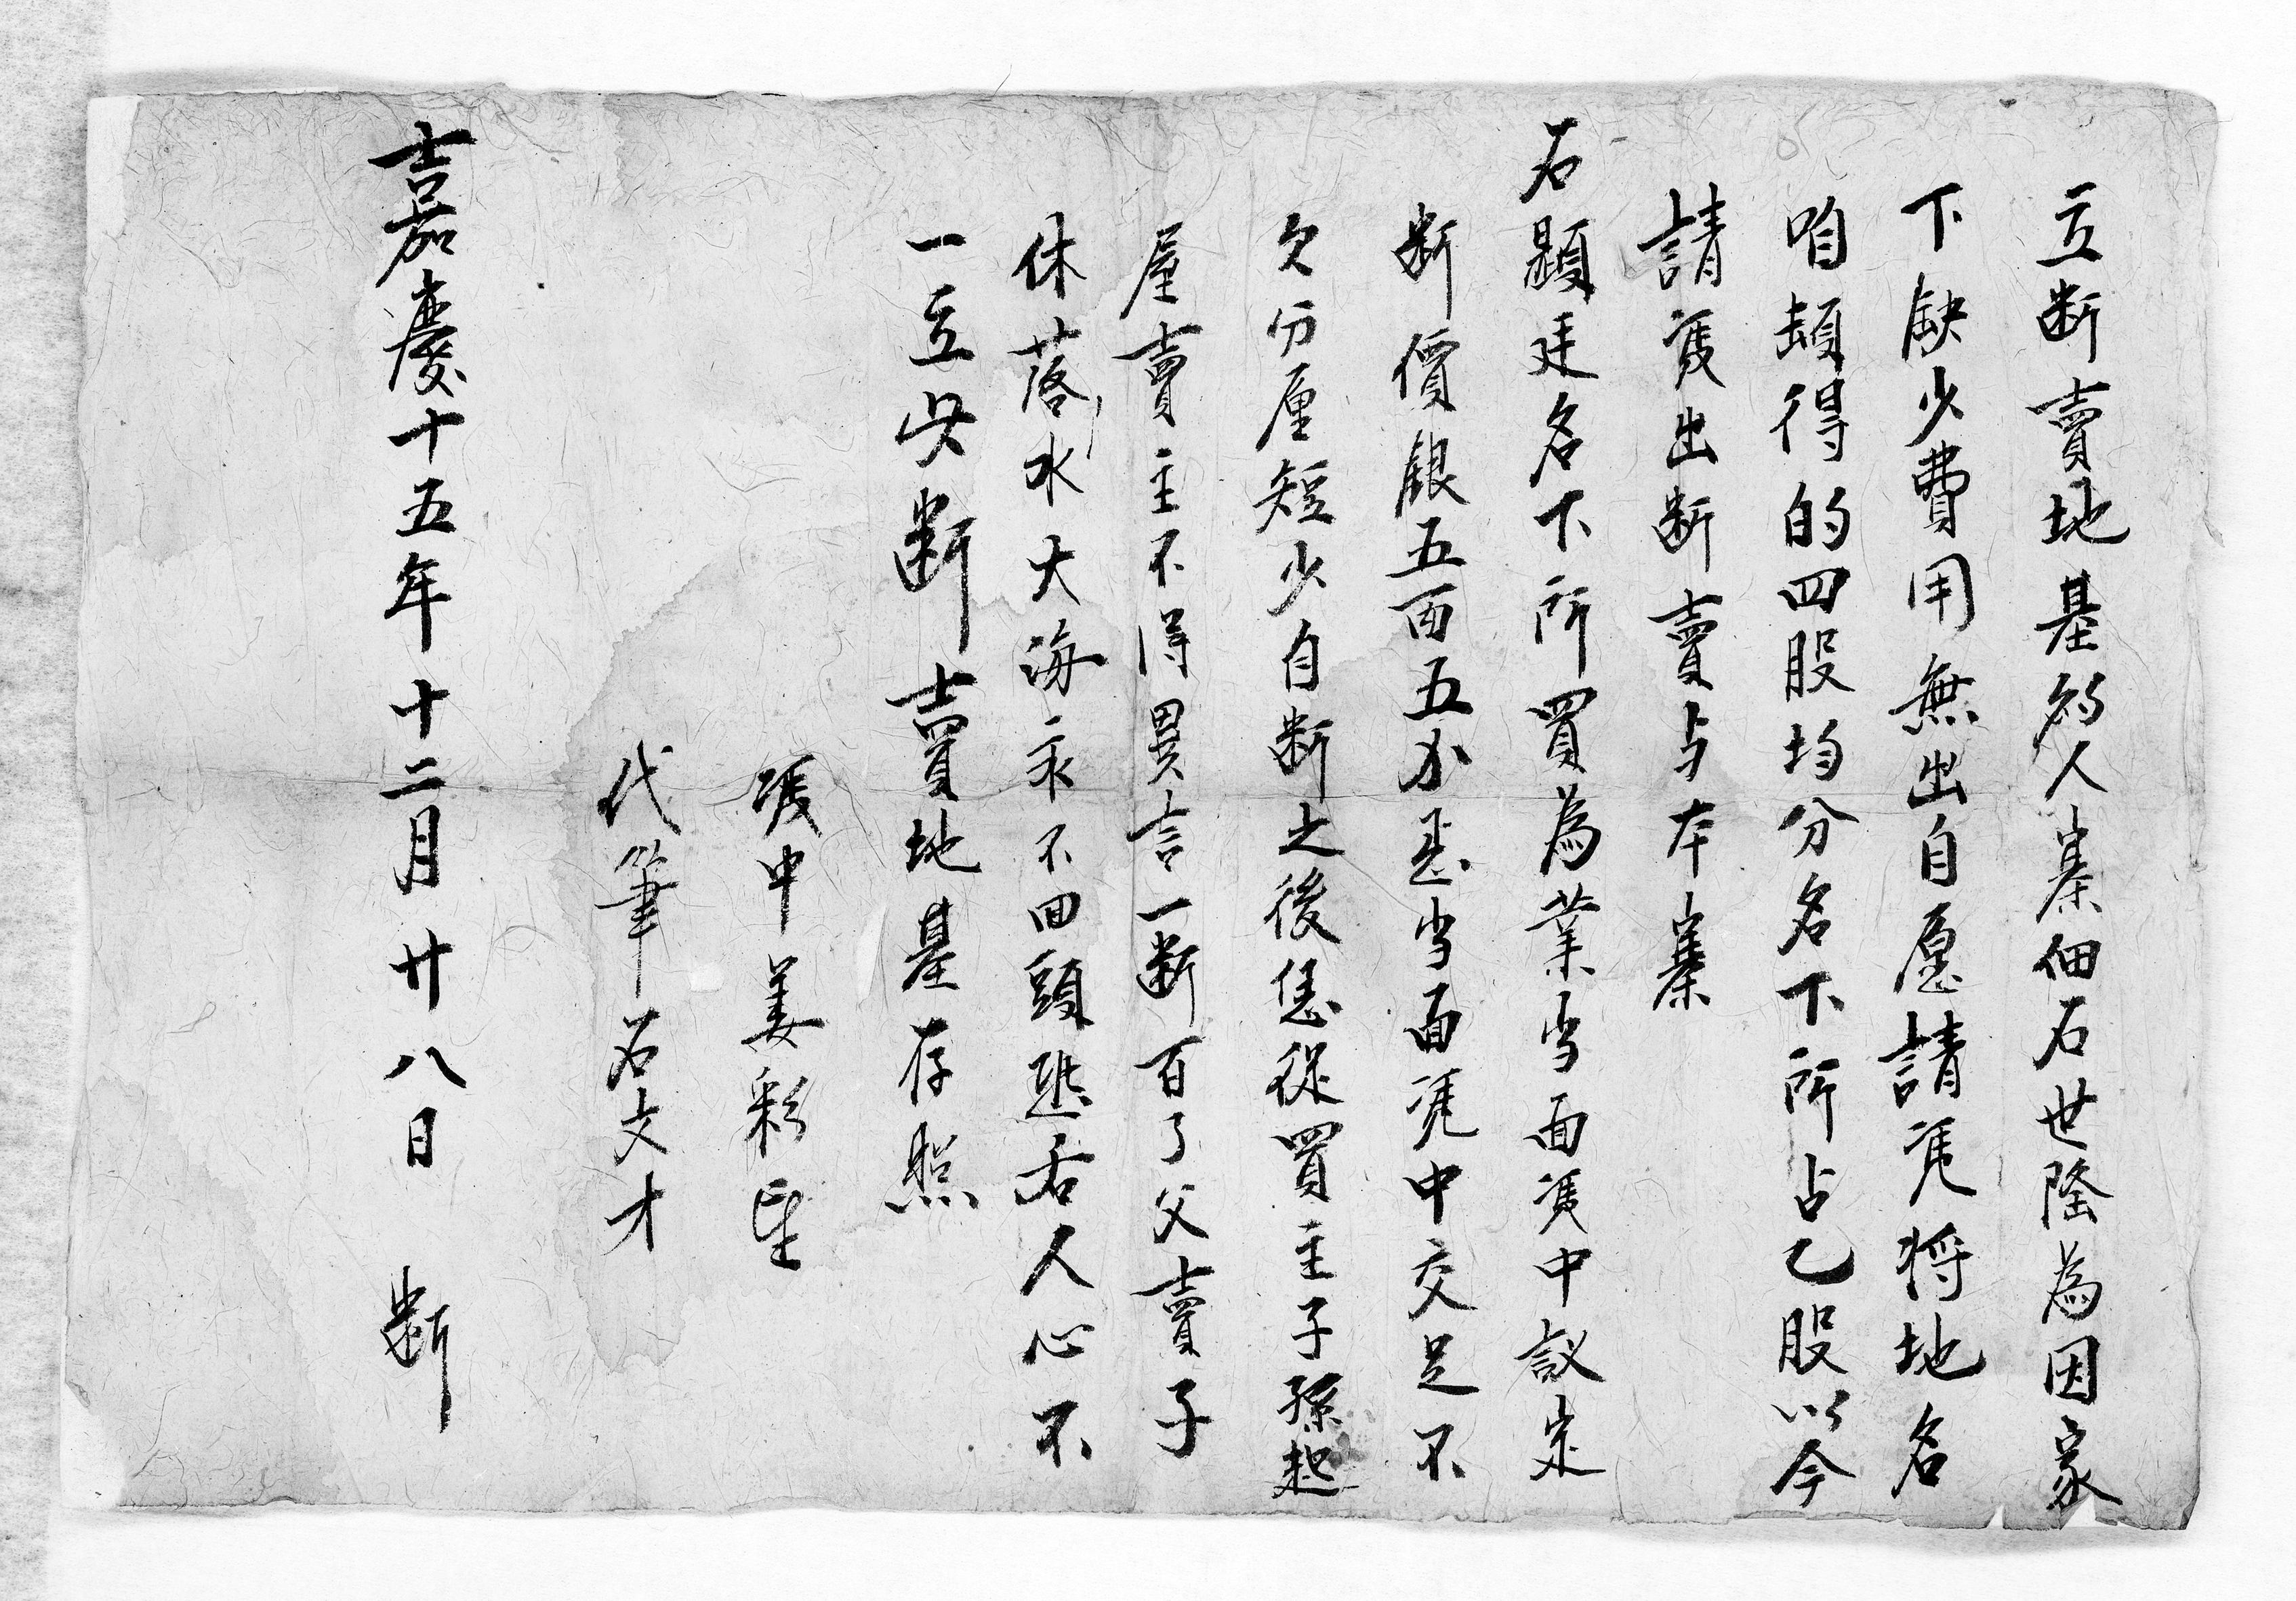 立断賣地基約人寨佃石世隆為因家
下缺少費用無出自愿請凴将地名
咱頡得的四股均分名下所占乙股以今
請凴出断賣与本寨
石顕廷名下所買為業当面凴中議定
断價銀五両五分悉当面凴中交足不
欠分厘短少自断之後恁從買主子孫起
屋賣主不得異言一断百了父賣子
休落水大海永不回頭人心不
一立此断賣地基存照
凴中姜彩臣
代筆石文才
嘉慶十五年十二月廿八日 断